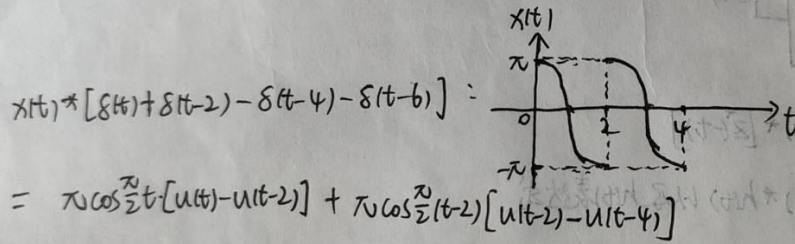 x(t)
π
x(t)*[δ(t)+δ(t-2)-δ(t-4)-δ(t-6)] :
0 2 4 t
-π
= πcos π/2 t·[u(t)-u(t-2)] + πcos π/2 (t-2)[u(t-2)-u(t-4)]